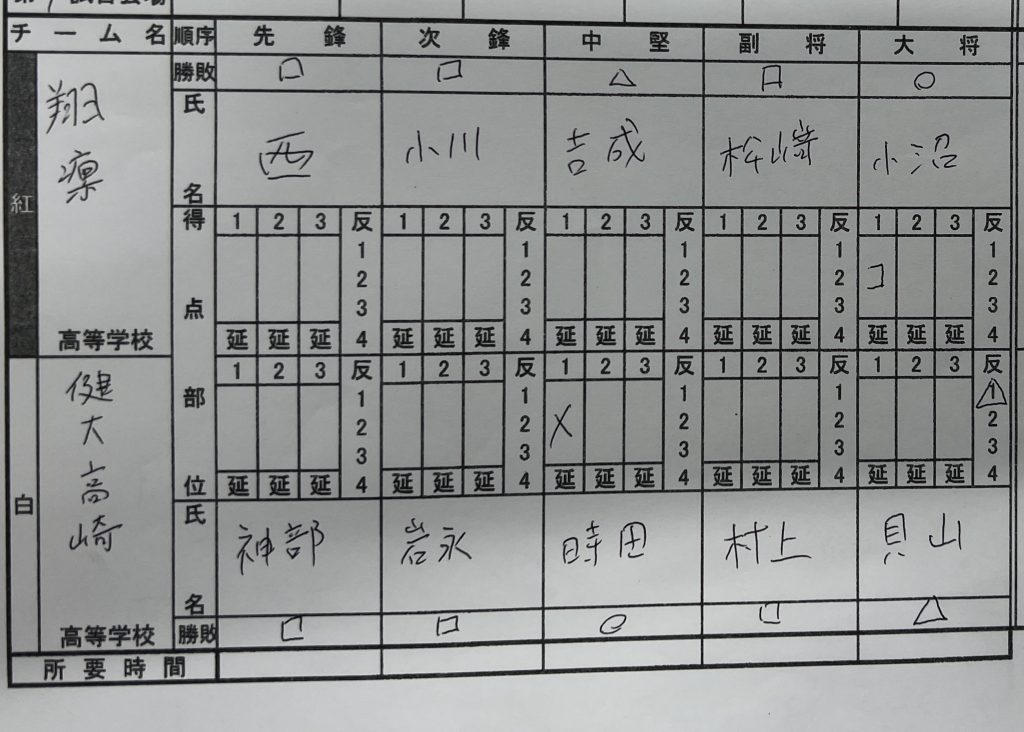 チーム名 順序 先鋒 次鋒 中堅 副将 大将
勝敗 □ □ △ □ ○
紅 翔凜 高等学校
氏名 西 小川 吉成 松﨑 小沼
得点部位
1 2 3 反 1 2 3 反 1 2 3 反 1 2 3 反 1 2 3 反
1 2 3 4 1 2 3 4 1 2 3 4 1 2 3 4 1 2 3 4
コ
延 延 延 延 延 延 延 延 延 延 延 延 延 延 延
白 健大高崎 高等学校
1 2 3 反 1 2 3 反 1 2 3 反 1 2 3 反 1 2 3 反
1 2 3 4 1 2 3 4 1 2 3 4 1 2 3 4 1 2 3 4
メ △
延 延 延 延 延 延 延 延 延 延 延 延 延 延 延
氏名 神部 岩永 時田 村上 貝山
勝敗 □ □ ○ □ △
所要時間